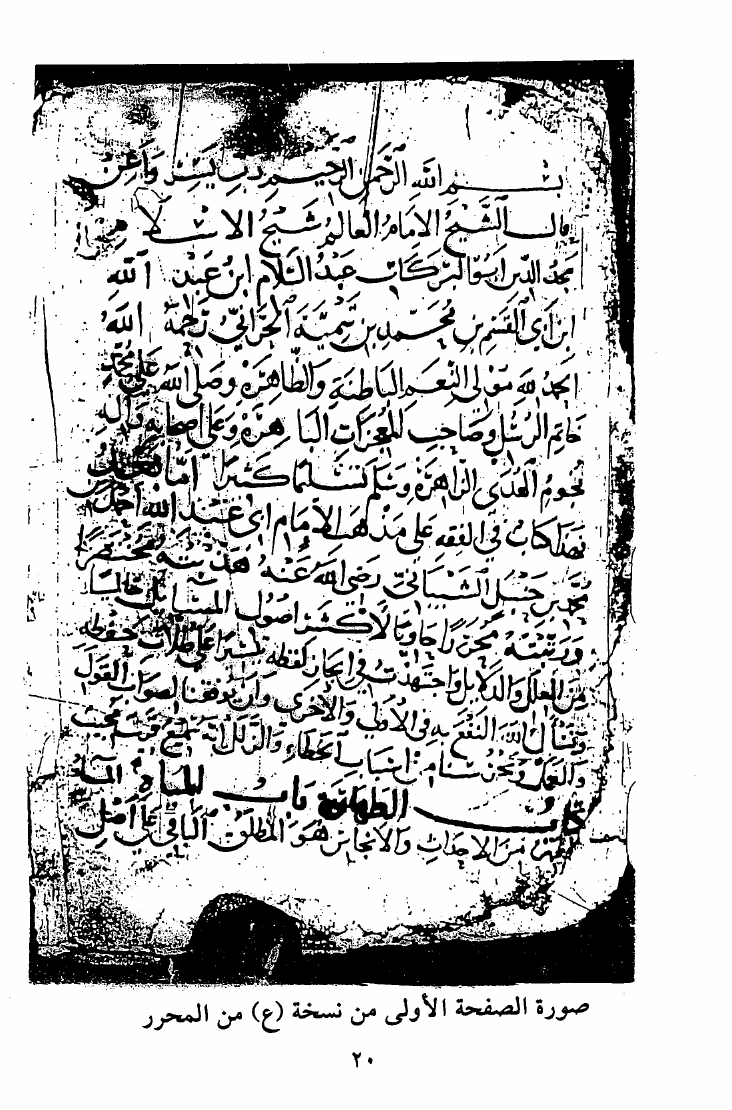 بسم الله الرحمن الرحيم رب يسر وأعن
قال الشيخ الامام العالم شيخ الاسلا
مجد الدين ابو البركات عبد السلام ابن عبد الله
ابن ابي القسم بن محمد بن تيمية الحراني رحمه الله
الحمد لله مولى النعم الباطنة والظاهرة وصلى الله على محمد
خاتم الرسل وصاحب المعجزات الباهرة وعلى اصحابه وآله
نجوم الهدى الزاهرة وسلم تسليما كثيرا اما بعد
فهذا كتاب في الفقه على مذهب الامام ابي عبد الله احمد بن
محمد بن حنبل الشيباني رضي الله عنه هذبته مختصرا
ورتبته محررا حاويا لاكثر اصول المسائل خاليا
من العلل والدلائل واجتهدت في ايجاز لفظه تيسيرا على طلاب حفظه
ونسأل الله النفع به في الاولى والاخرى وان يوفقنا لصواب القول
والعمل ويحرسنا من اسباب الخطاء والزلل انه سميع قريب مجيب
كتاب الطهارة باب المياه الماء
المطهر من الاحداث والانجاس هو المطلق الباقي على اصل
صورة الصفحة الأولى من نسخة (ع) من المحرر
٢٠